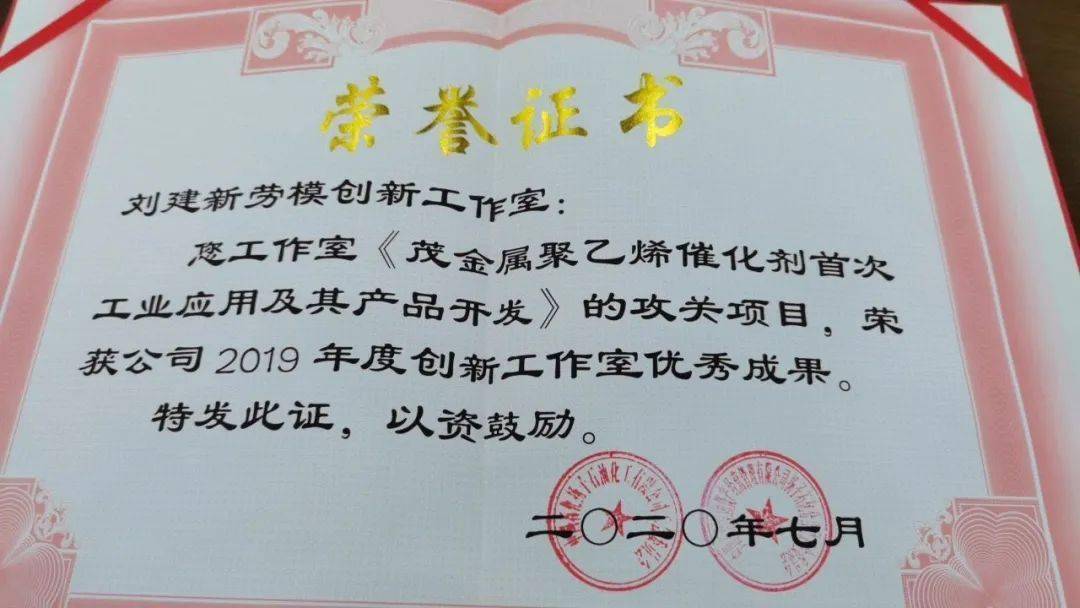 荣誉证书
刘建新劳模创新工作室：
您工作室《茂金属聚乙烯催化剂首次
工业应用及其产品开发》的攻关项目，荣
获公司2019年度创新工作室优秀成果。
特发此证，以资鼓励。
二〇二〇年七月